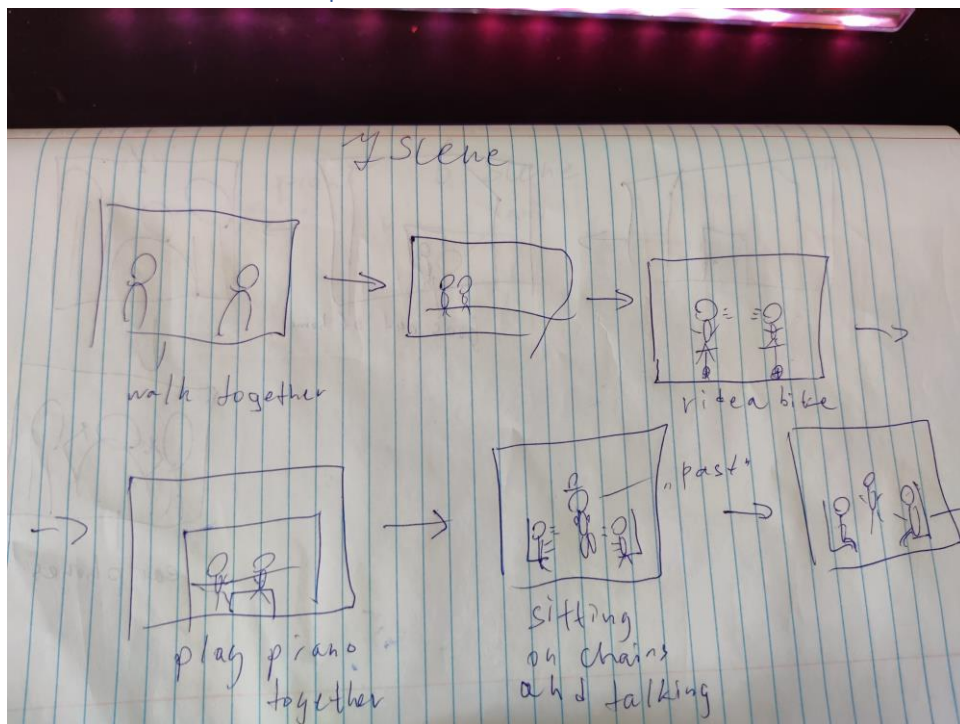 y scene
walk together
ride a bike
play piano
together
"past"
sitting
on chairs
and talking